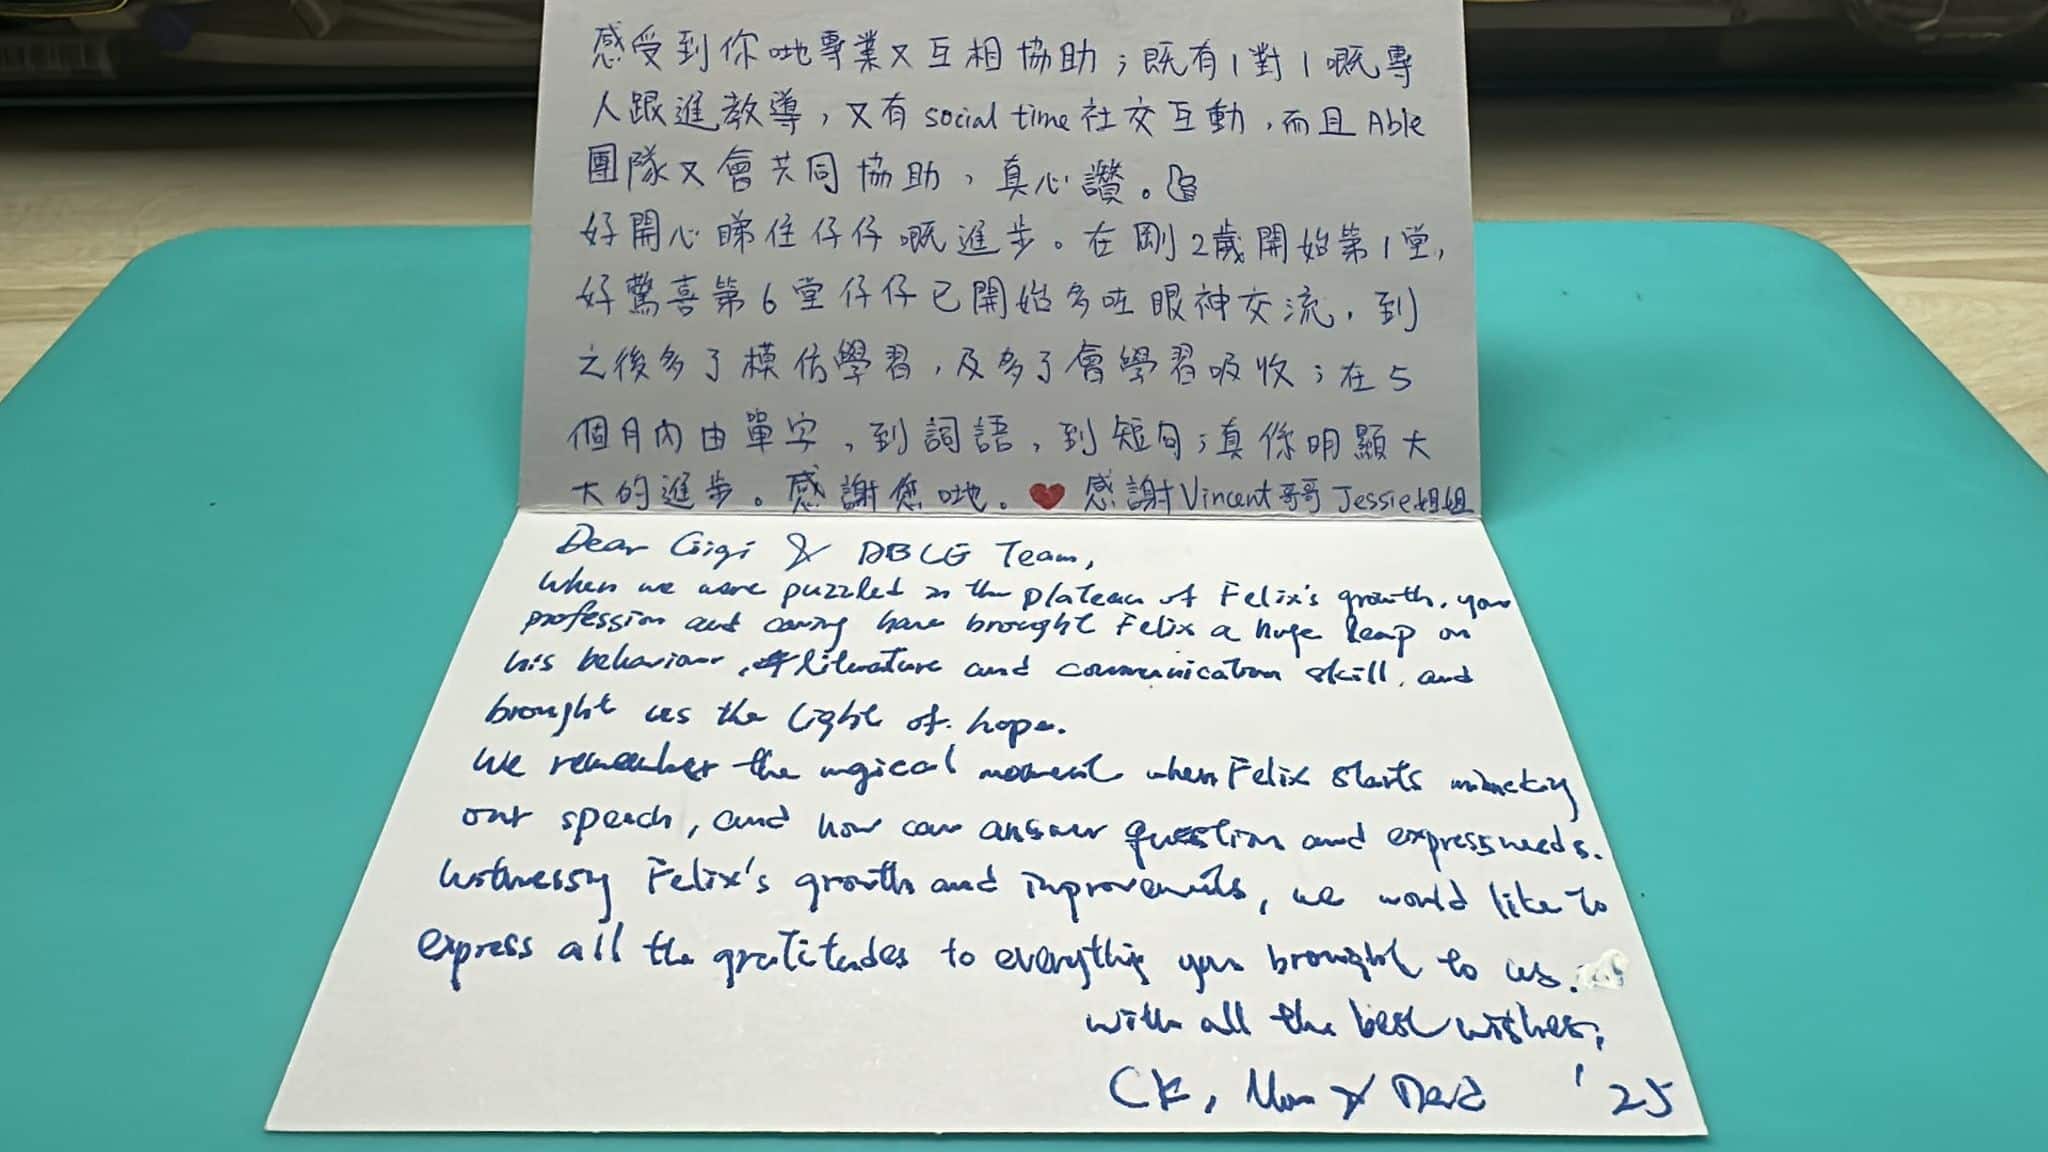 感受到你哋專業又互相協助；既有1對1嘅專
人跟進教導，又有social time社交互動，而且Able
團隊又會共同協助，真心讚。
好開心睇住仔仔嘅進步。在剛2歲開始第1堂，
好驚喜第6堂仔仔已開始多咗眼神交流，到
之後多了模仿學習，及多了會學習吸收；在5
個月內由單字，到詞語，到短句；真係明顯大
大的進步。感謝您哋。❤感謝Vincent哥哥 Jessie姐姐
Dear Gigi & ABLE Team,
When we were puzzled in the plateau of Felix's growth, your
profession and caring have brought Felix a huge leap on
his behaviour, literature and communication skill, and
brought us the light of hope.
We remember the magical moment when Felix starts mimicking
our speech, and now can answer question and express needs.
Witnessing Felix's growth and improvements, we would like to
express all the gratitudes to everything you brought to us.
with all the best wishes,
CK, Mom & Dad '25